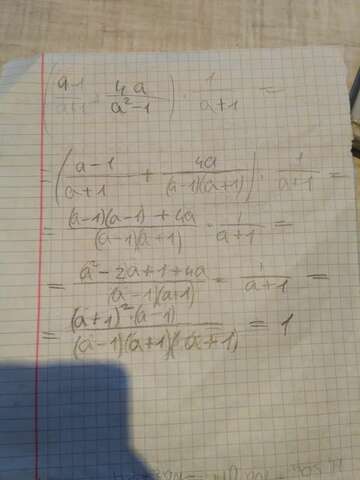 ( a-1/a+1 + 4a/a²-1 ) · 1/a+1 =
= ( a-1/a+1 + 4a/(a-1)(a+1) ) · 1/a+1 =
= (a-1)(a-1)+4a/(a-1)(a+1) · 1/a+1 =
= a²-2a+1+4a/(a-1)(a+1) · 1/a+1 =
= (a+1)²·(a-1)/(a-1)(a+1)(a+1) = 1